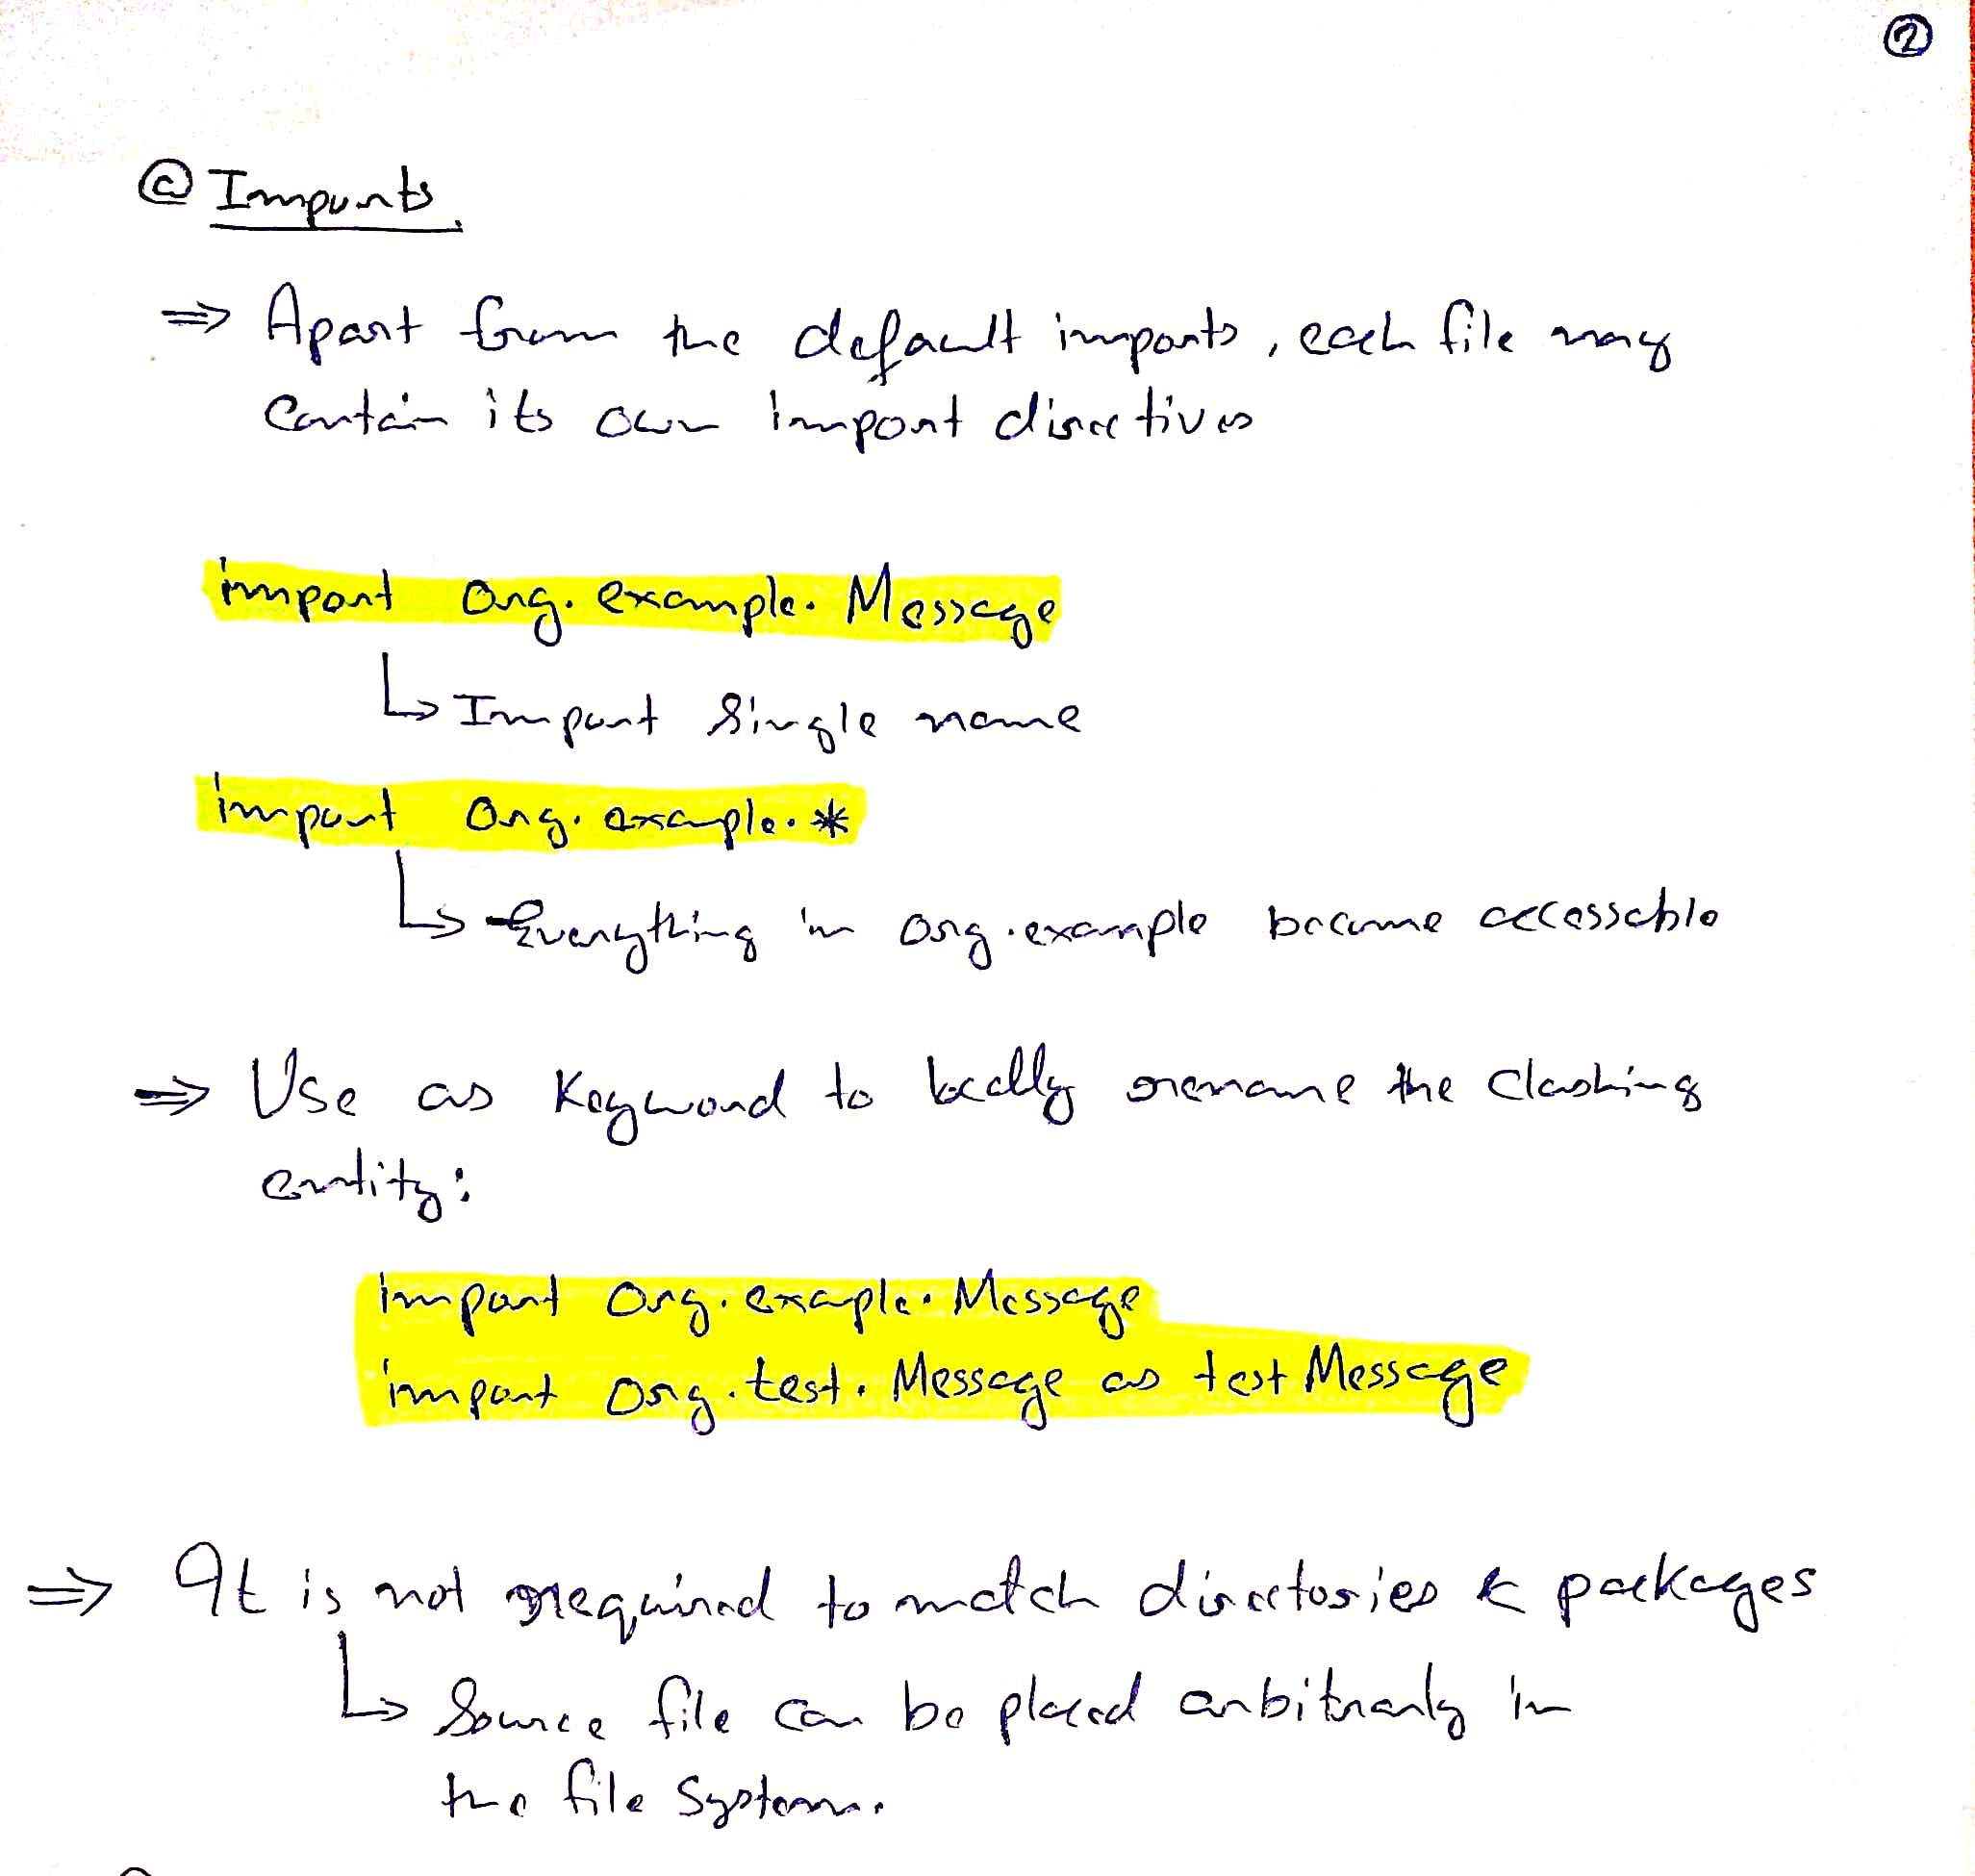 ②
ⓒ Imports.
⇒ Apart from the default imports, each file may
contain its own import directives
import org.example.Message
↳ Import single name
import org.example.*
↳ Everything in org.example become accessable
⇒ Use as keyword to locally rename the clashing
entity:
import org.example.Message
import org.test.Message as testMessage
⇒ It is not required to match directories & packages
↳ Source file can be placed arbitrarly in
the file system.